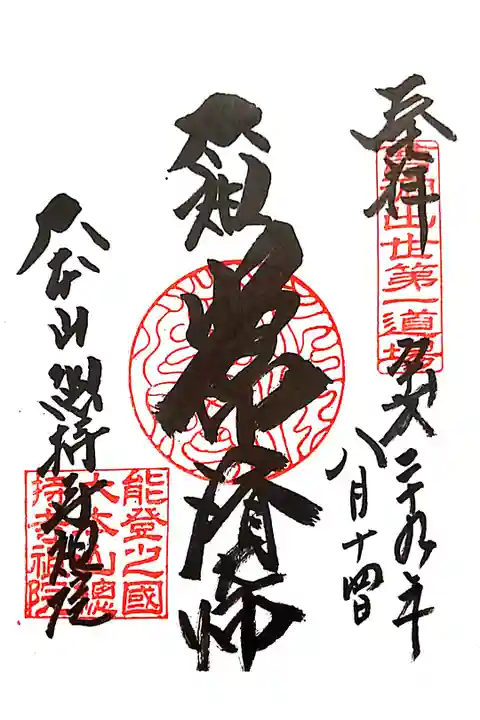 奉拝
曹洞出世第一道場
平成二十九年
八月十四日
太祖常済大師
大本山總持寺祖院
能登之國
大本山總
持寺祖院